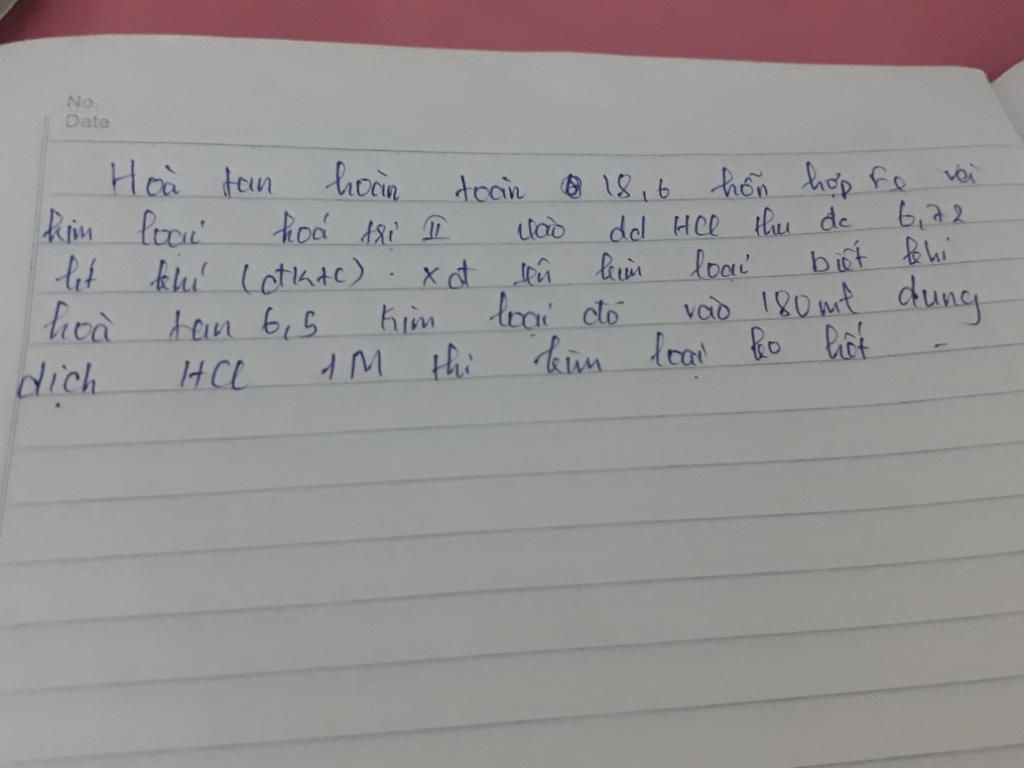 No.
Date
Hoà tan hoàn toàn 18,6 hỗn hợp Fe với
kim loại hoá trị II vào dd HCl thu đc 6,72
lít khí (đktc). xđ tên kim loại biết khi
hoà tan 6,5 kim loại đó vào 180ml dung
dịch HCl 1M thì kim loại ko hết -